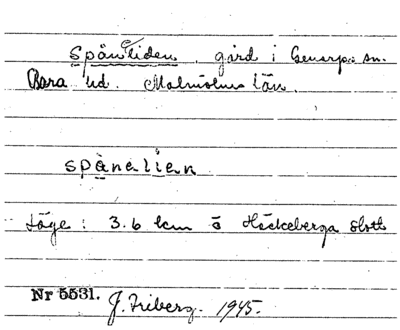 Spånᵉliden, gård i Genarps sn.
Bara hd. Malmöhus län.
spånalien
Läge: 3.6 km ö Häckeberga slott
Nr 5531. J. Friberg. 1945.